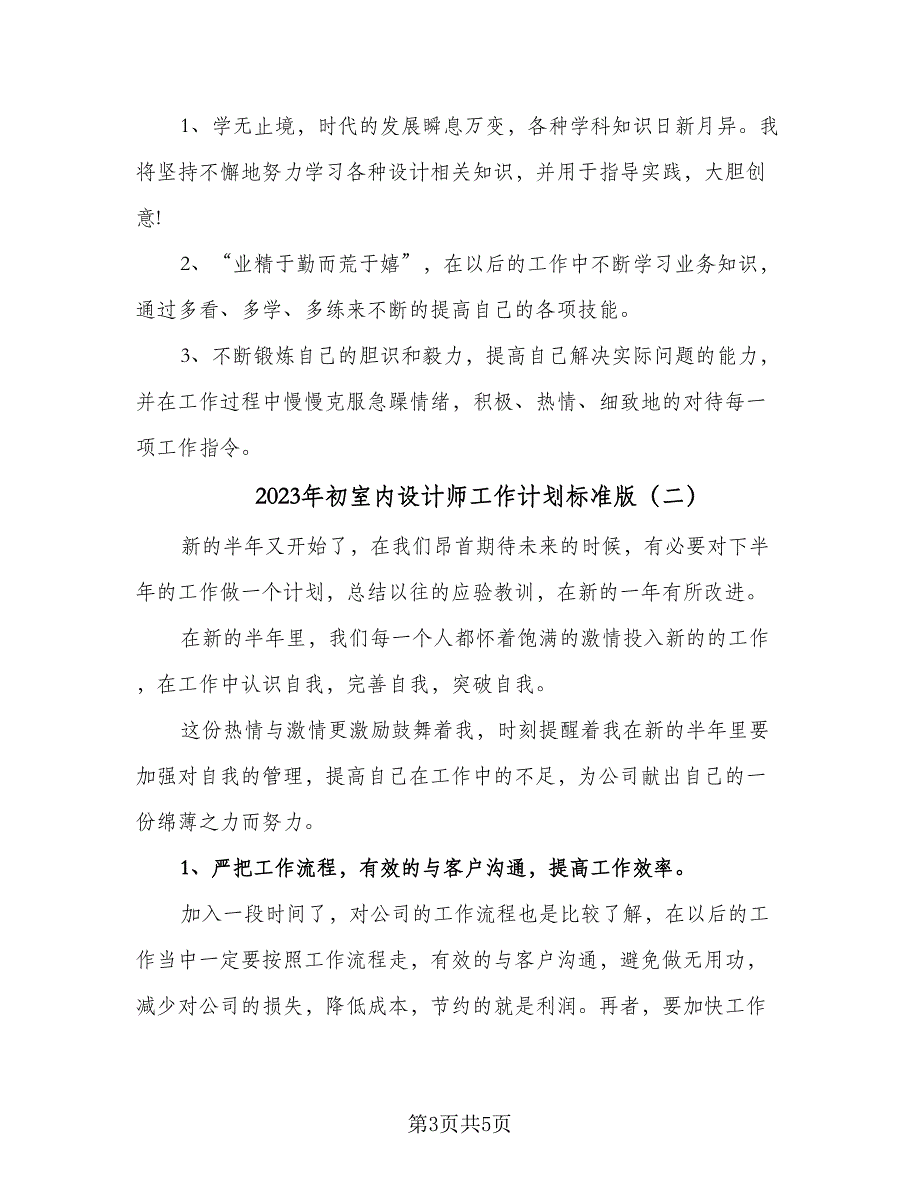 1、学无止境，时代的发展瞬息万变，各种学科知识日新月异。我
将坚持不懈地努力学习各种设计相关知识，并用于指导实践，大胆创
意!
2、“业精于勤而荒于嬉”，在以后的工作中不断学习业务知识，
通过多看、多学、多练来不断的提高自己的各项技能。
3、不断锻炼自己的胆识和毅力，提高自己解决实际问题的能力，
并在工作过程中慢慢克服急躁情绪，积极、热情、细致地的对待每一
项工作指令。
2023年初室内设计师工作计划标准版（二）
新的半年又开始了，在我们昂首期待未来的时候，有必要对下半
年的工作做一个计划，总结以往的应验教训，在新的一年有所改进。
在新的半年里，我们每一个人都怀着饱满的激情投入新的的工作
，在工作中认识自我，完善自我，突破自我。
这份热情与激情更激励鼓舞着我，时刻提醒着我在新的半年里要
加强对自我的管理，提高自己在工作中的不足，为公司献出自己的一
份绵薄之力而努力。
1、严把工作流程，有效的与客户沟通，提高工作效率。
加入一段时间了，对公司的工作流程也是比较了解，在以后的工
作当中一定要按照工作流程走，有效的与客户沟通，避免做无用功，
减少对公司的损失，降低成本，节约的就是利润。再者，要加快工作
第3页共5页